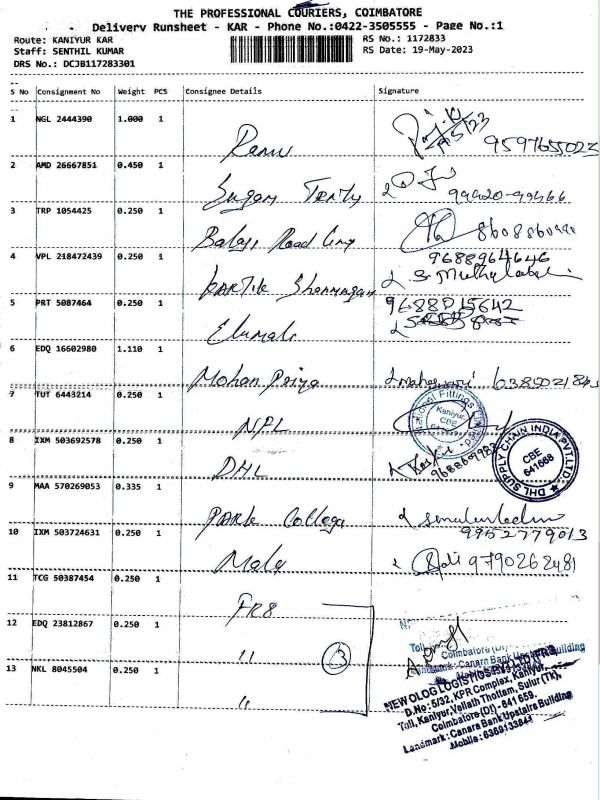 THE PROFESSIONAL COURIERS, COIMBATORE
Delivery Runsheet - KAR - Phone No.:0422-3505555 - Page No.:1
Route: KANIYUR KAR
RS No.: 1172833
Staff: SENTHIL KUMAR
RS Date: 19-May-2023
DRS No.: DCJB117283301
S No Consignment No Weight PCS Consignee Details Signature
1 NGL 2444390 1.000 1
Renu
2 AMD 26667851 0.450 1
99920-99466
3 TRP 1054425 0.250 1
Balaji Road
4 VPL 218472439 0.250 1
9688964646
Kartik Shanmugam
5 PRT 5087464 0.250 1
9688015642
Elumalai
6 EDQ 16602980 1.110 1
Mohan Priya
7 TUT 6443214 0.250 1
National Fittings
Kaniyur
CBE
NPL
8 IXM 503692578 0.250 1
DHL
DHL SUPPLY CHAIN INDIA PVT.LTD.
CBE
641668
9 MAA 570269053 0.335 1
Park College
9952779013
10 IXM 503724631 0.250 1
Mala
9790262481
11 TCG 50387454 0.250 1
FR8
12 EDQ 23812867 0.250 1
"
3
13 NKL 8045504 0.250 1
"
NEW OLOG LOGISTICS PVT LTD
D.No: 5/32, KPR Complex, Kaniyur,
Toll, Kaniyur, Vellath Thottam, Sulur (TK),
Coimbatore (Dt) - 641 659.
Landmark : Canara Bank Upstairs Building
Mobile : 6369133841